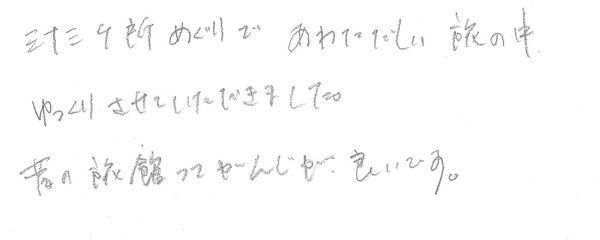 三十三ヶ所めぐりで あわただしい 旅の中
ゆっくりさせていただきました。
昔の旅館ってかんじが良いです。